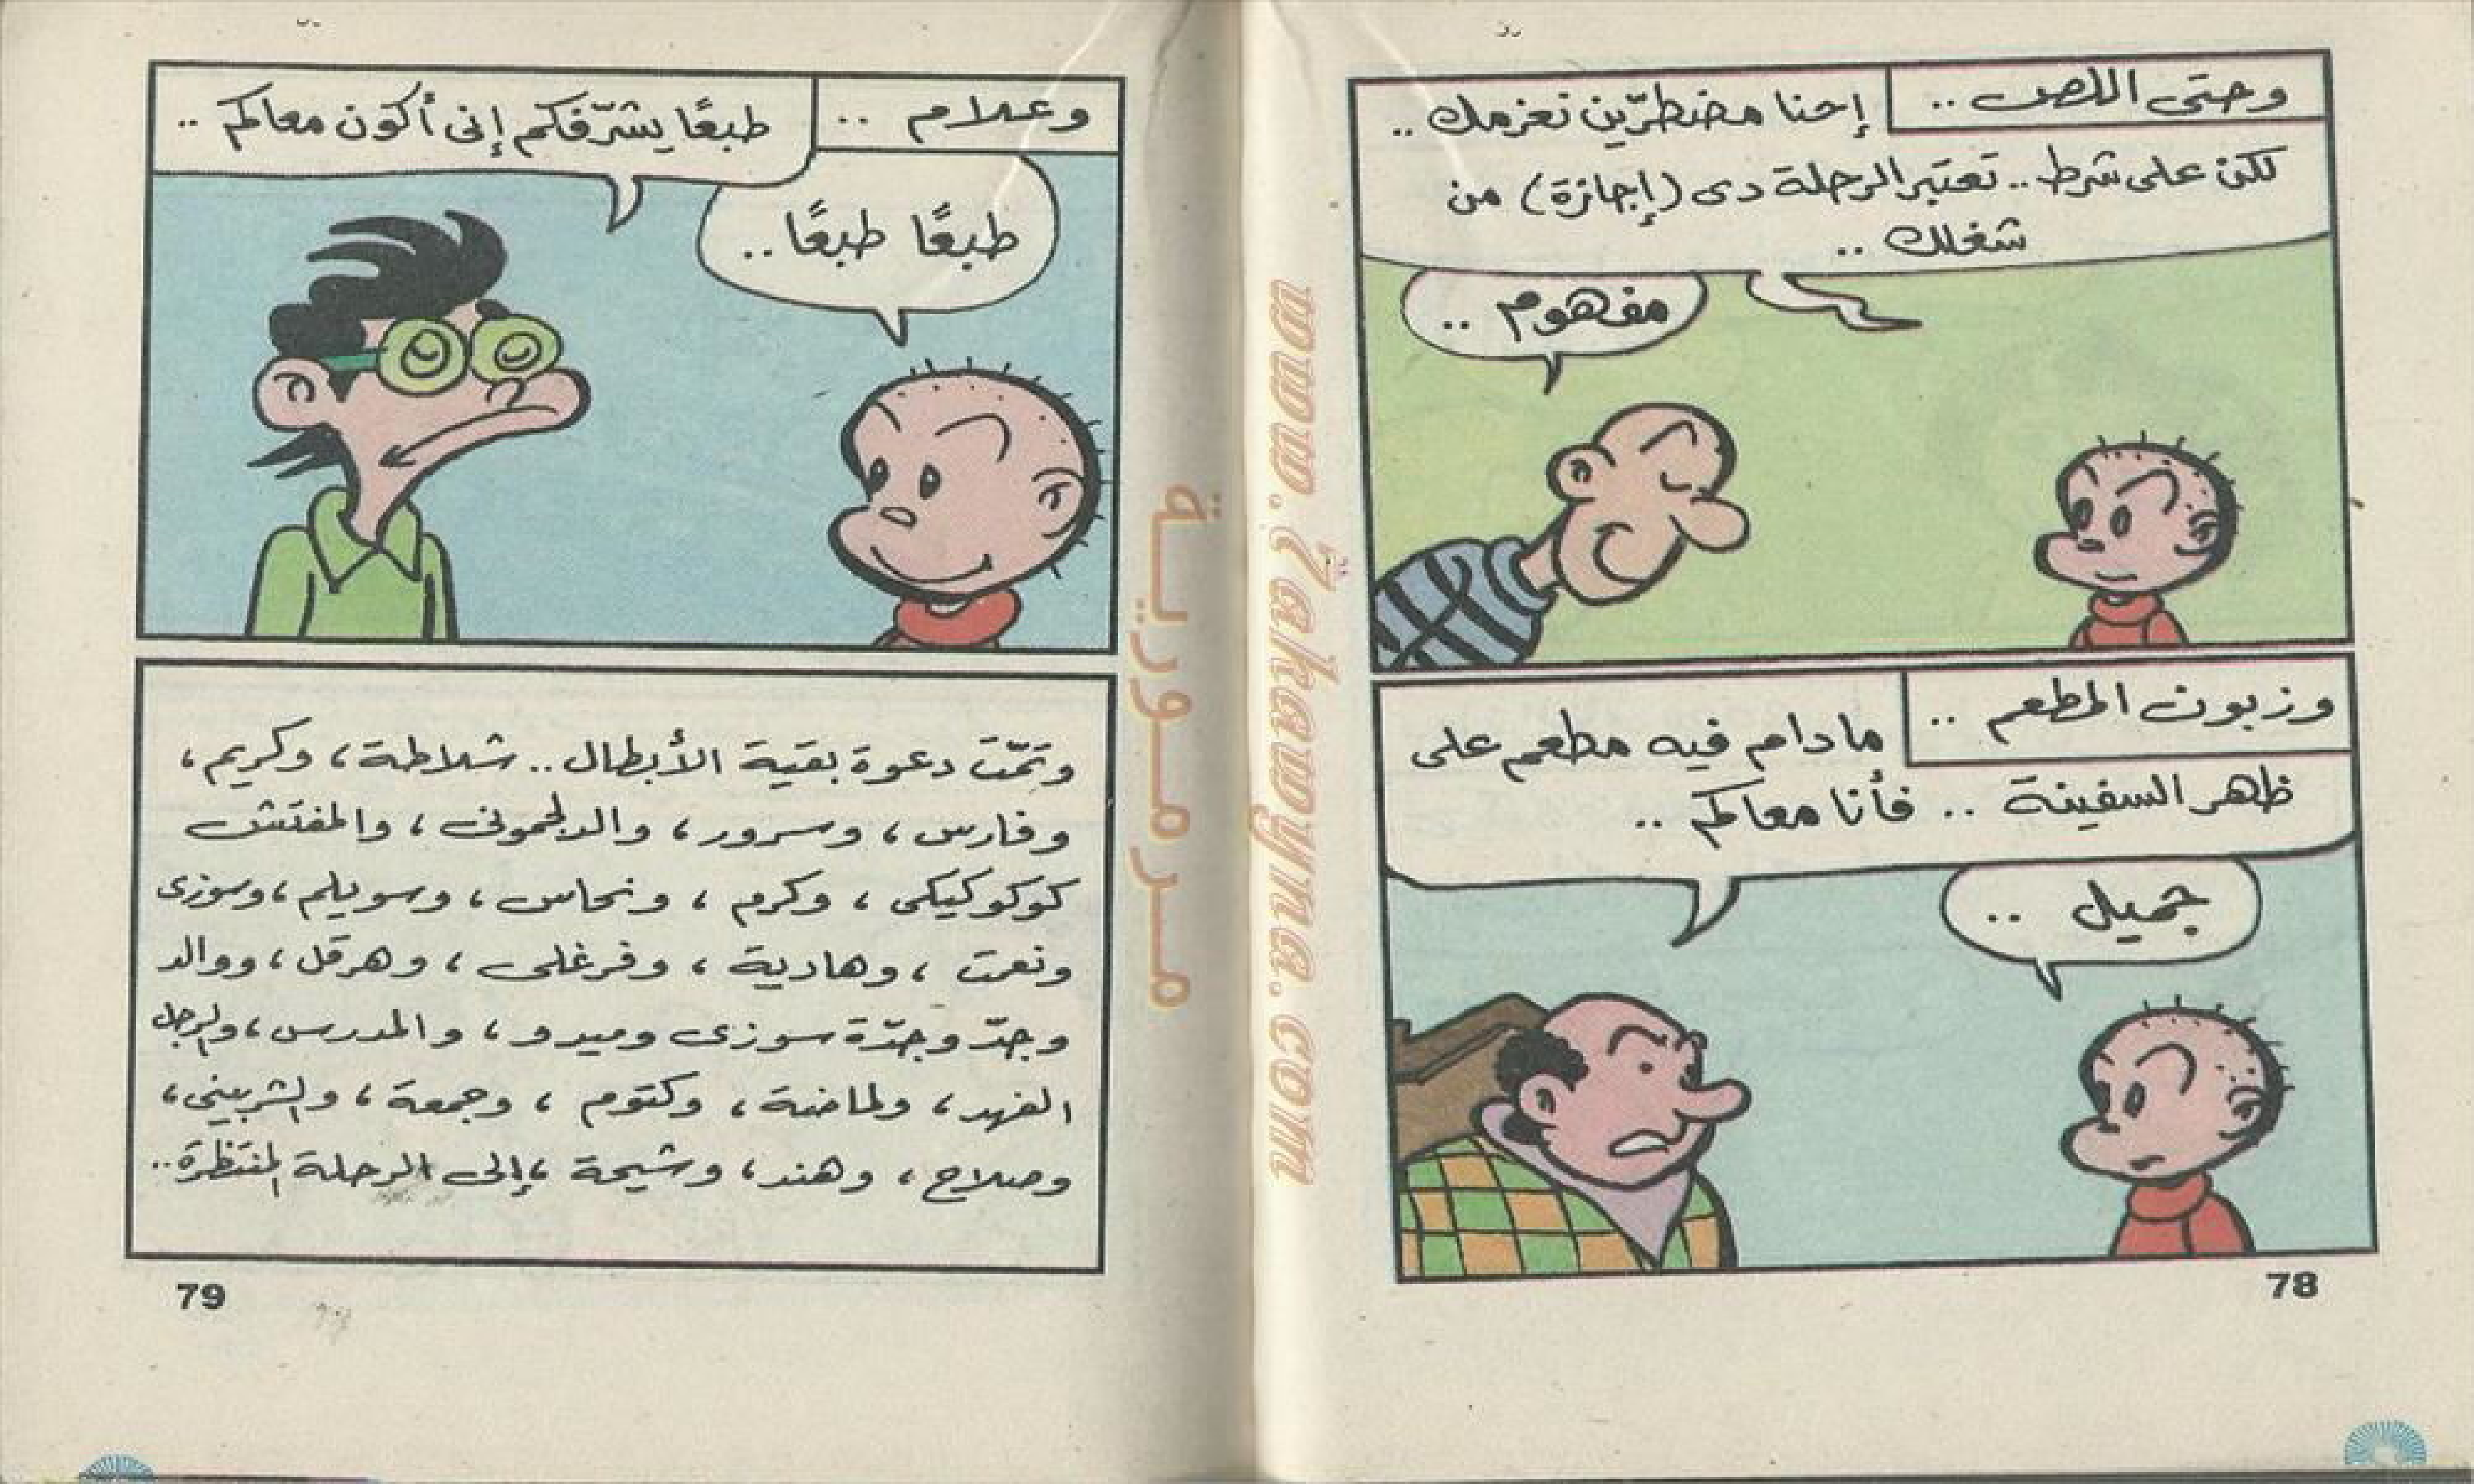 وحتى اللص ..
إحنا مضطرّين نعزمك ..
لكن على شرط .. تعتبر الرحلة دى (إجازة) من
شغلك ..
مفهوم ..
وزبون المطعم ..
مادام فيه مطعم على
ظهر السفينة .. فأنا معاكم ..
جميل ..
78
وعلام ..
طبعًا يشرّفكم إنى أكون معاكم ..
طبعًا طبعًا ..
وتمّت دعوة بقية الأبطال .. شلاطة ، وكريم ،
وفارس ، وسرور ، والدلجمونى ، والمفتش
كوكوكيكى ، وكرم ، ونحاس ، وسويلم ، وسوزى
ونعمت ، وهادية ، وفرغلى ، وهرقل ، ووالد
وجدّ وجدّة سوزى وميدو ، والمدرس ، والرجل
الفهد ، ولماضة ، وكتوم ، وجمعة ، والشربينى ،
وصلاح ، وهند ، وشيحة ، إلى الرحلة المنتظرة ..
79
مرمورية
www.7akawyna.com